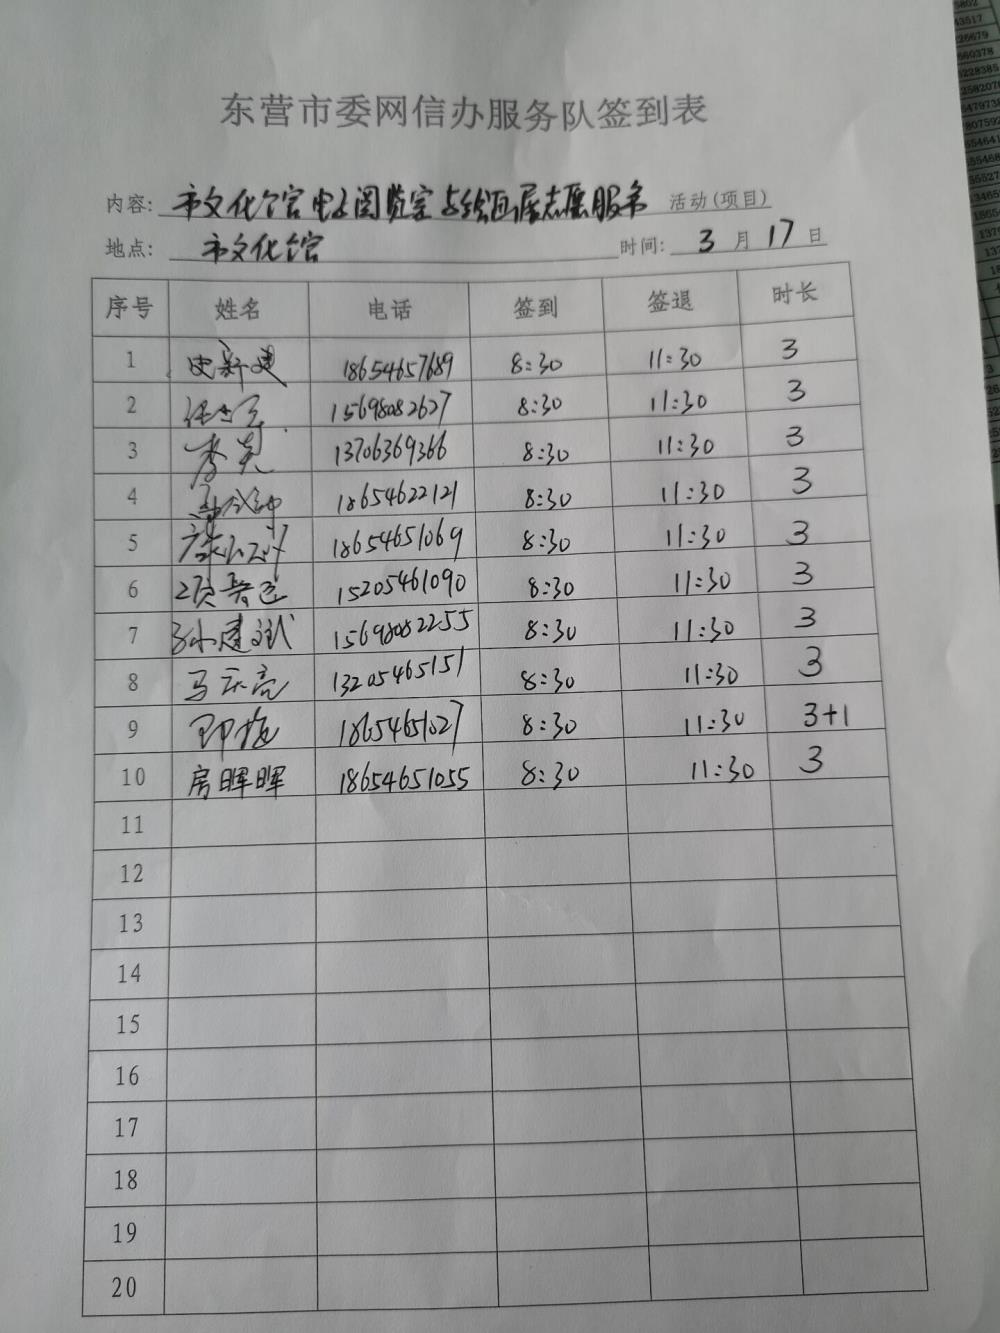 东营市委网信办服务队签到表
内容: 市文化馆电子阅览室与绘画展志愿服务 活动(项目)
地点: 市文化馆 时间: 3 月 17 日
序号 姓名 电话 签到 签退 时长
1 史新建 18654657689 8:30 11:30 3
2 15698082627 8:30 11:30 3
3 李亮 13706369366 8:30 11:30 3
4 18654622121 8:30 11:30 3
5 18654651069 8:30 11:30 3
6 15205461090 8:30 11:30 3
7 孙建斌 15698082255 8:30 11:30 3
8 马庆亮 13205465151 8:30 11:30 3
9 18654651027 8:30 11:30 3+1
10 房晖晖 18654651055 8:30 11:30 3
11
12
13
14
15
16
17
18
19
20